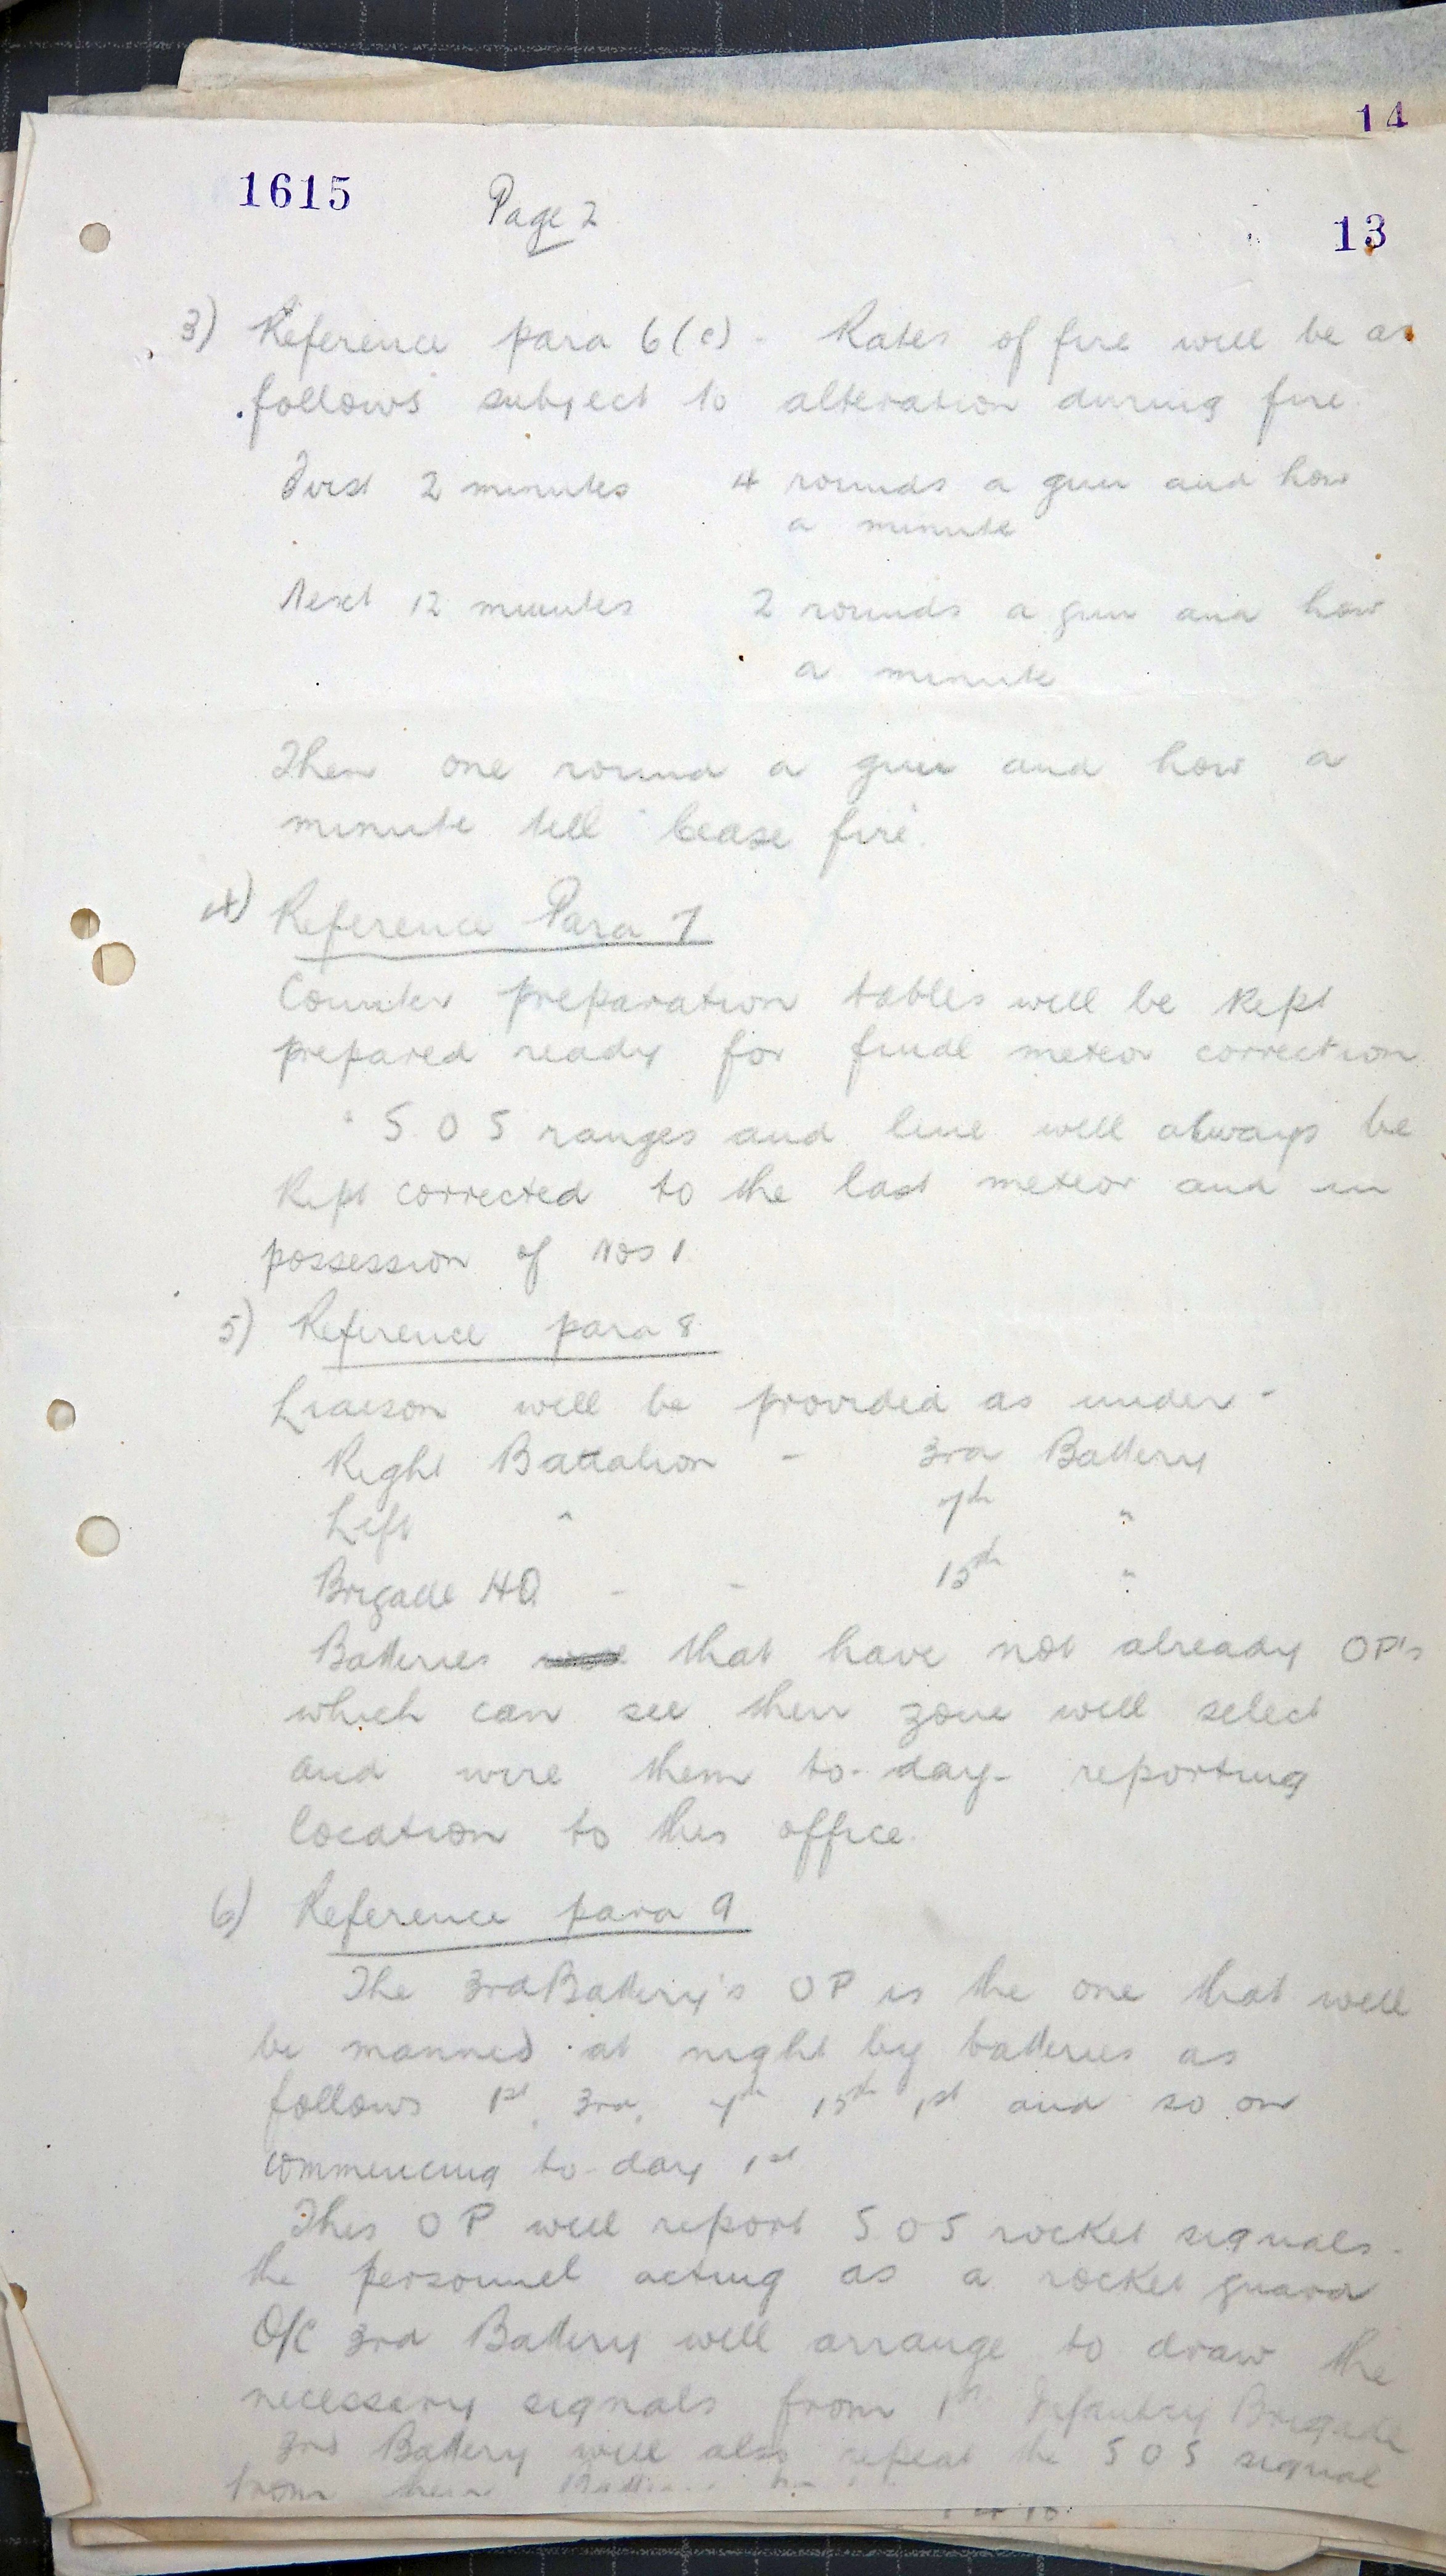 14
1615 Page 2 13
3) Reference para 6(c) - Rates of fire will be as
follows subject to alteration during fire.
First 2 minutes 4 rounds a gun and how
a minute
Next 12 minutes 2 rounds a gun and how
a minute
Then one round a gun and how a
minute till "Cease fire".
4) Reference Para 7
Counter preparation tables will be kept
prepared ready for final meteor correction.
S.O.S ranges and line will always be
kept corrected to the last meteor and in
possession of Nos 1.
5) Reference para 8
Liaison will be provided as under -
Right Battalion - 3rd Battery
Left " 7th "
Brigade HQ - - 15th "
Batteries that have not already OP's
which can see their zone will select
and wire them to-day - reporting
location to this office.
6) Reference para 9
The 3rd Battery's OP is the one that will
be manned at night by batteries as
follows 1st, 3rd, 7th 15th 1st and so on
commencing to-day 1st
This OP will report S.O.S rocket signals -
the personnel acting as a rocket guard
O/C 3rd Battery will arrange to draw the
necessary signals from 1st Infantry Brigade
3rd Battery will also repeat the S O S signal
from their